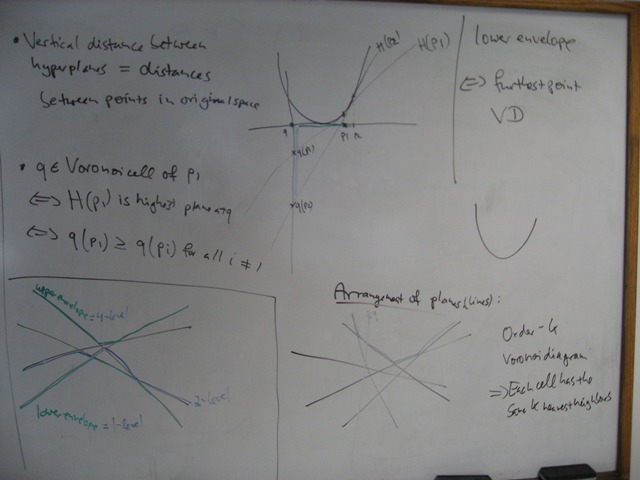 • Vertical distance between
hyperplanes = distances
between points in original space
H(p2)
H(p1)
q
p1
p2
q(p1)
q(p2)
lower envelope
⇔ furthest point
VD
• q ∈ Voronoi cell of p1
⇔ H(p1) is highest plane at q
⇔ q(p1) ≥ q(pi) for all i ≠ 1
upper envelope = 4-level
2-level
lower envelope = 1-level
Arrangement of planes (lines):
Order-k
Voronoi diagram
⇒ Each cell has the
same k nearest neighbors